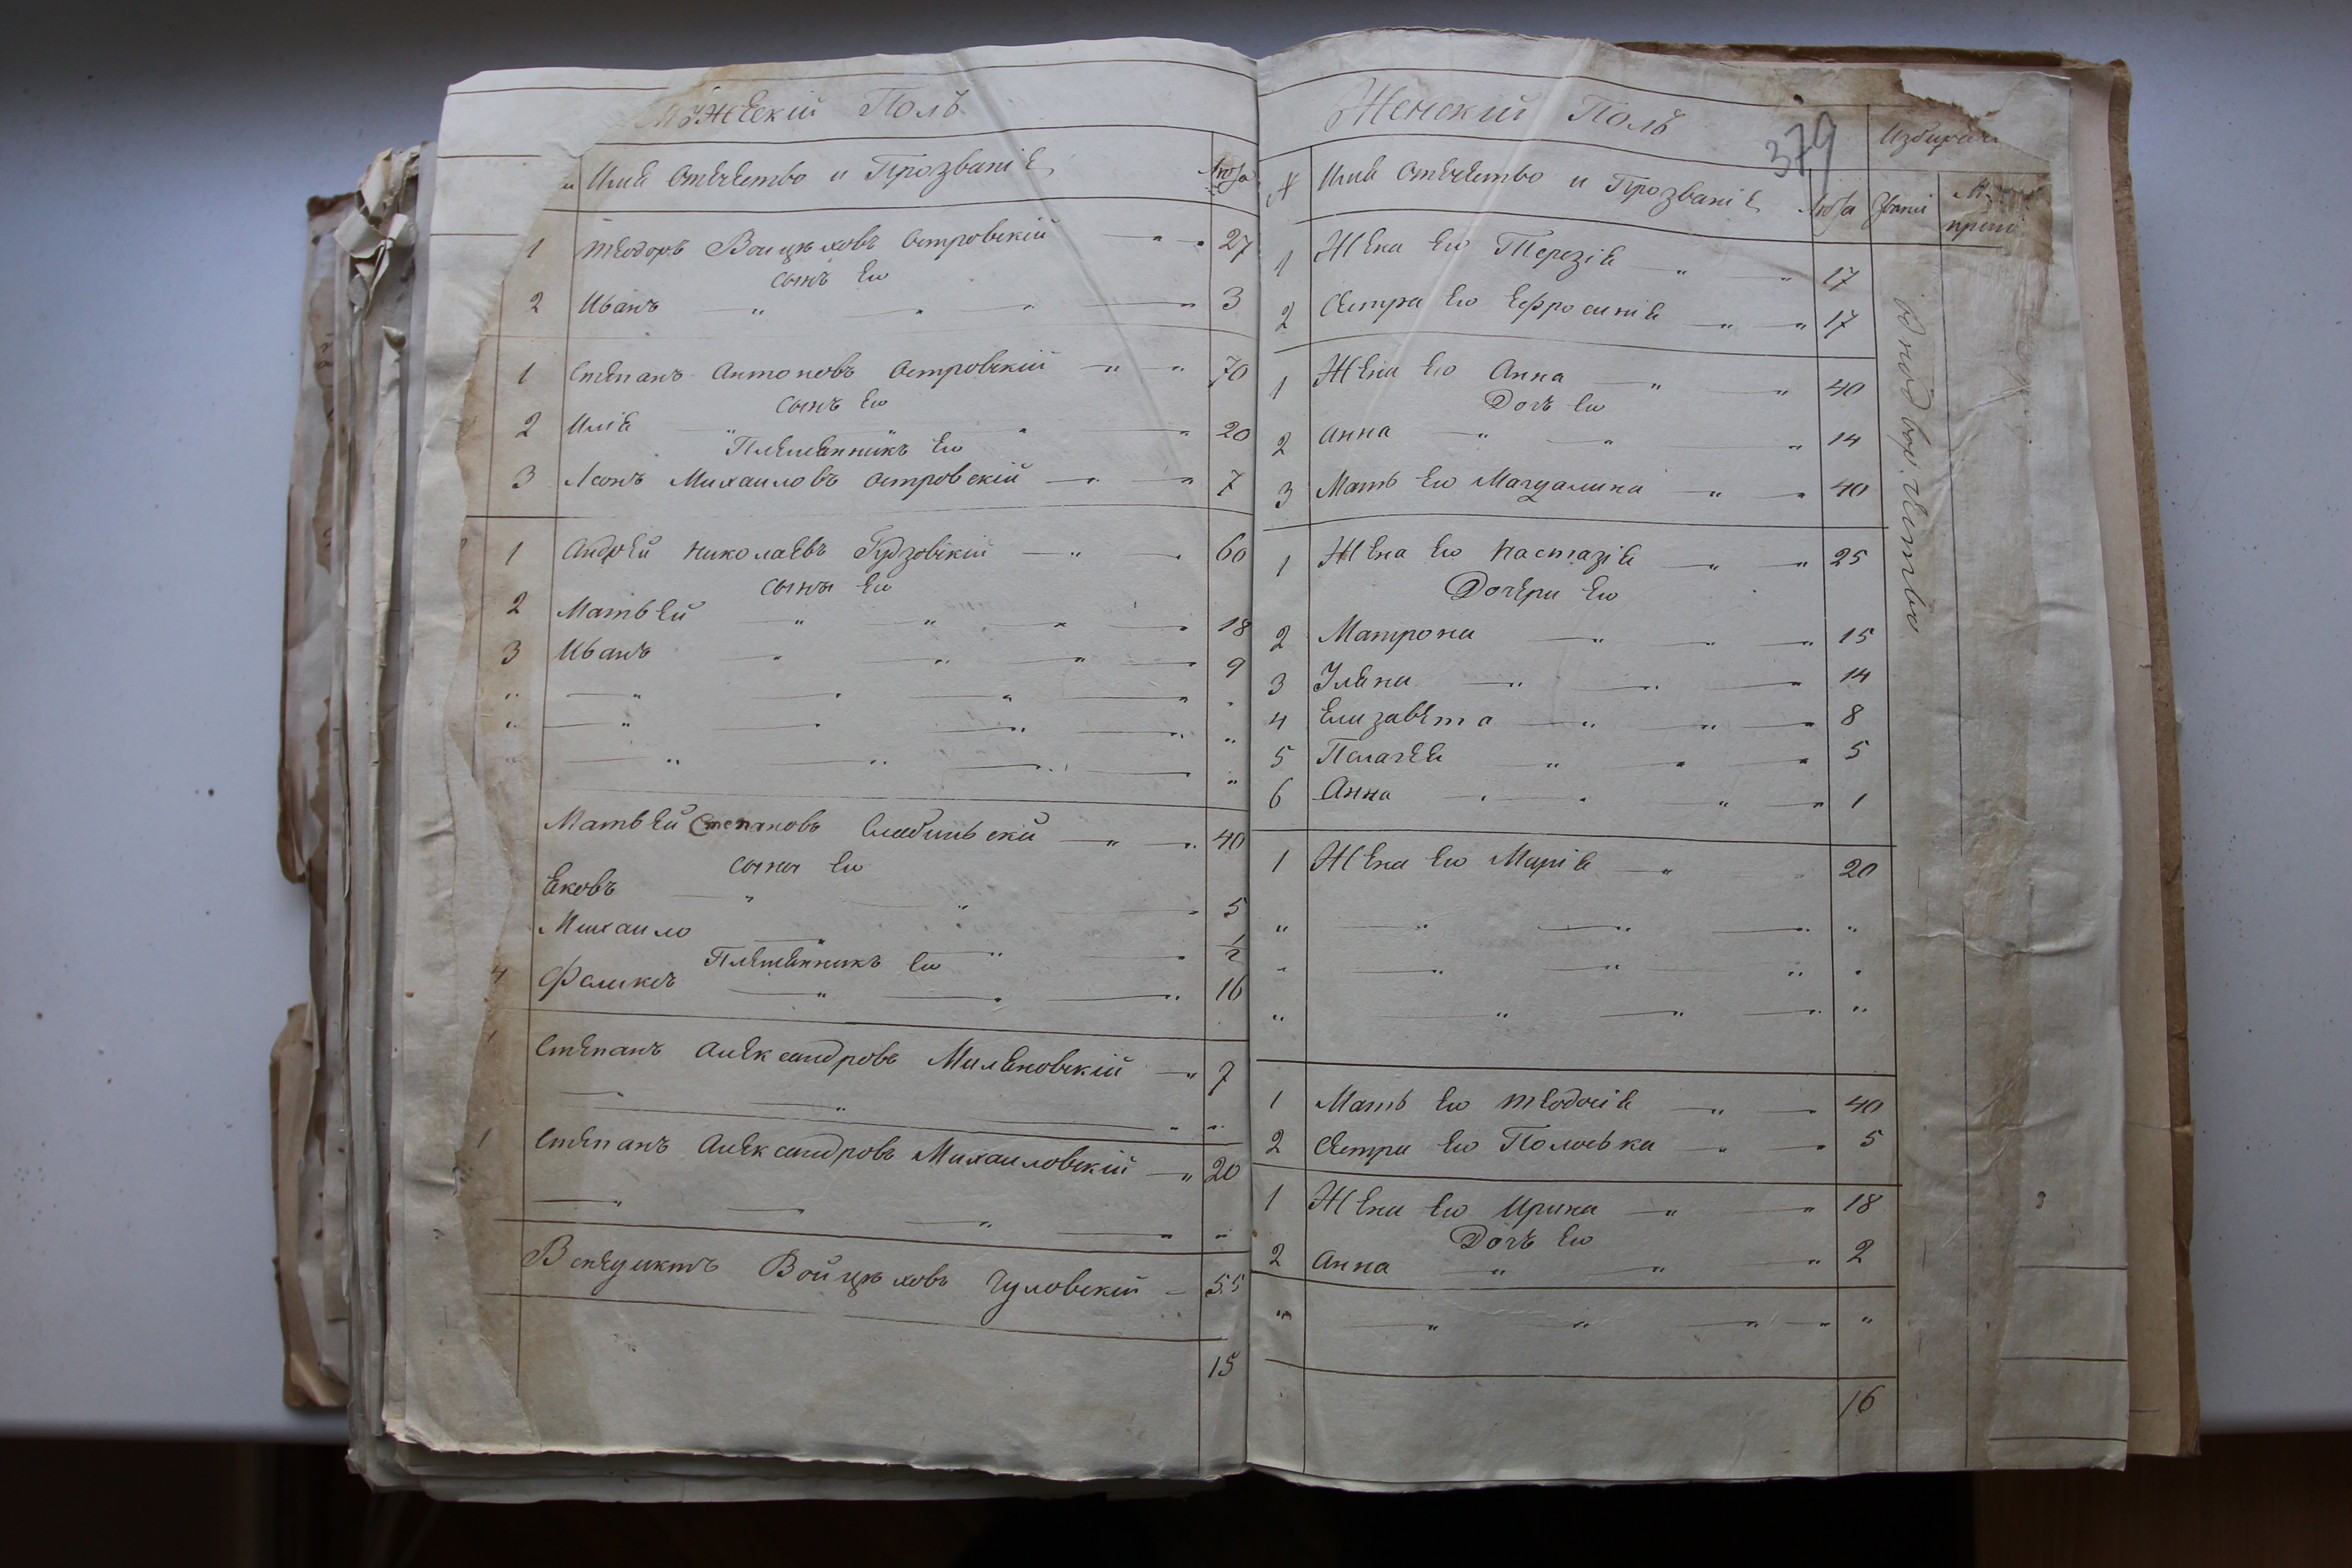 Мужескій Полъ
Имѣ Отечество и Прозваніе Люта
1 Теодоръ Войцеховъ Островскій 27
сынъ Ею
2 Иванъ 3
1 Степанъ Антоновъ Островскій 70
сынъ Ею
2 Иліе 20
Племенникъ Ею
3 Леонъ Михаиловъ Островскій 7
1 Андрей Николаевъ Гудзовскій 60
сыны Ею
2 Матвей 18
3 Иванъ 9
Матвей Степановъ 40
сыны Ею
Ековъ 5
Михаило 1/2
Племенникъ Ею
4 Феликсъ 16
1 Степанъ Александровъ Миленовскій 7
1 Степанъ Александровъ Михаиловскій 20
Венедиктъ Войцеховъ Чуловскій 55
15
Женскій Полъ
379
№ Имѣ Отечество и Прозваніе Люта Званіі
1 Жена Ею Терезіе 17
2 Сестра Ею Ефросиніе 17
1 Жена Ею Анна 40
Дочъ Ею
2 Анна 14
3 Мать Ею Магдалина 40
1 Жена Ею Настазіе 25
Дочери Ею
2 Матрона 15
3 Улена 14
4 Елизавета 8
5 Пелагее 5
6 Анна 1
1 Жена Ею Маріе 20
1 Мать Ею Теодосіе 40
2 Сестра Ею 5
1 Жена Ею Ирина 18
Дочъ Ею
2 Анна 2
16